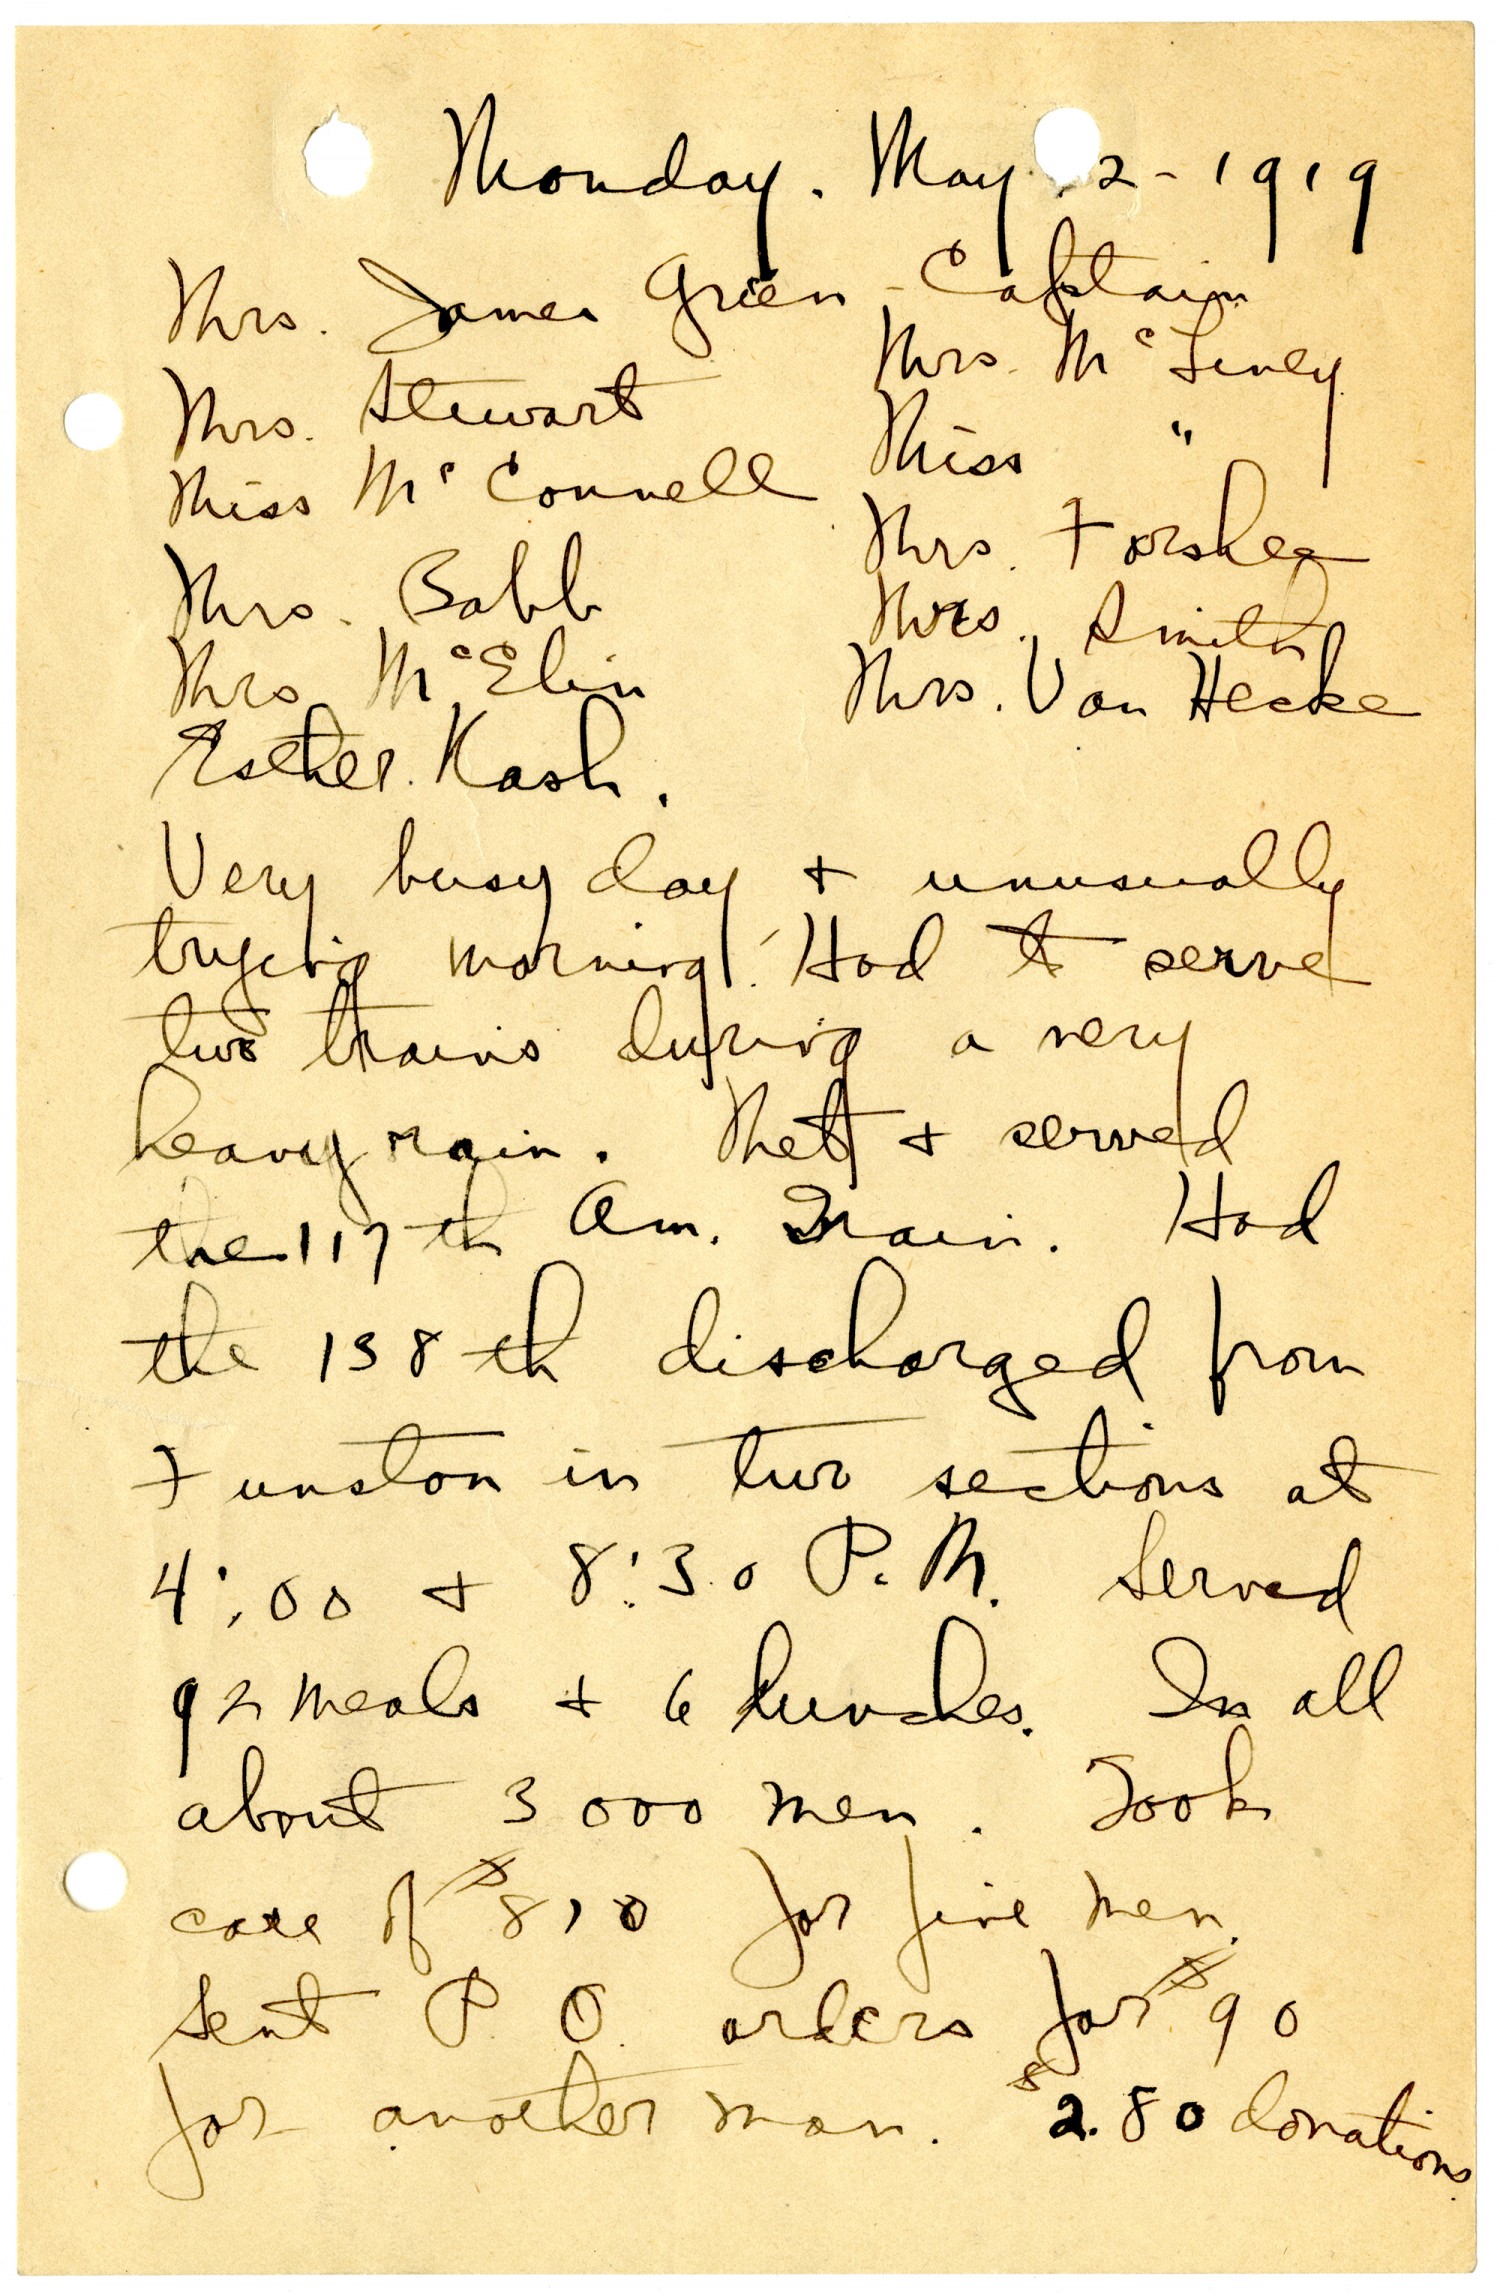 Monday. May 12 - 1919
Mrs. James Green - Captain
Mrs. Stewart
Miss McConnell
Mrs. Babb
Mrs. McElvin
Esther Kash.
Mrs. McLiney
Miss "
Mrs. Forshee
Mrs. Smith
Mrs. Van Hecke
Very busy day + unusually
trying morning. Had to serve
two trains during a very
heavy rain. Met + served
the 117th Am. Train. Had
the 138th discharged from
Funston in two sections at
4:00 + 8:30 P.M. Served
92 meals + 6 lunches. In all
about 3000 men. Took
care of $810 for five men.
Sent P.O. orders for $90
for another man. $2.80 donations.